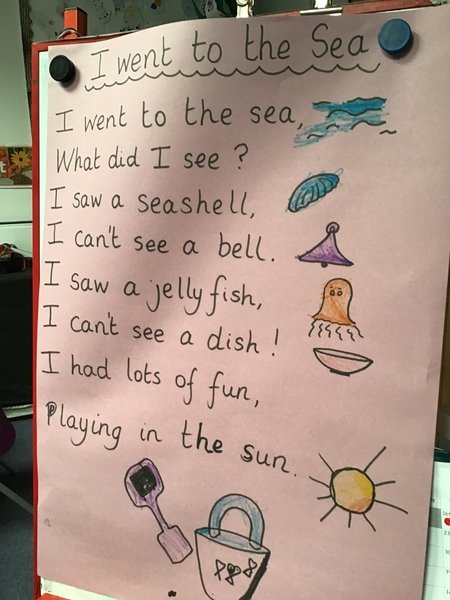 I went to the Sea
I went to the sea,
What did I see ?
I saw a seashell,
I can't see a bell.
I saw a jelly fish,
I can't see a dish !
I had lots of fun,
Playing in the sun.